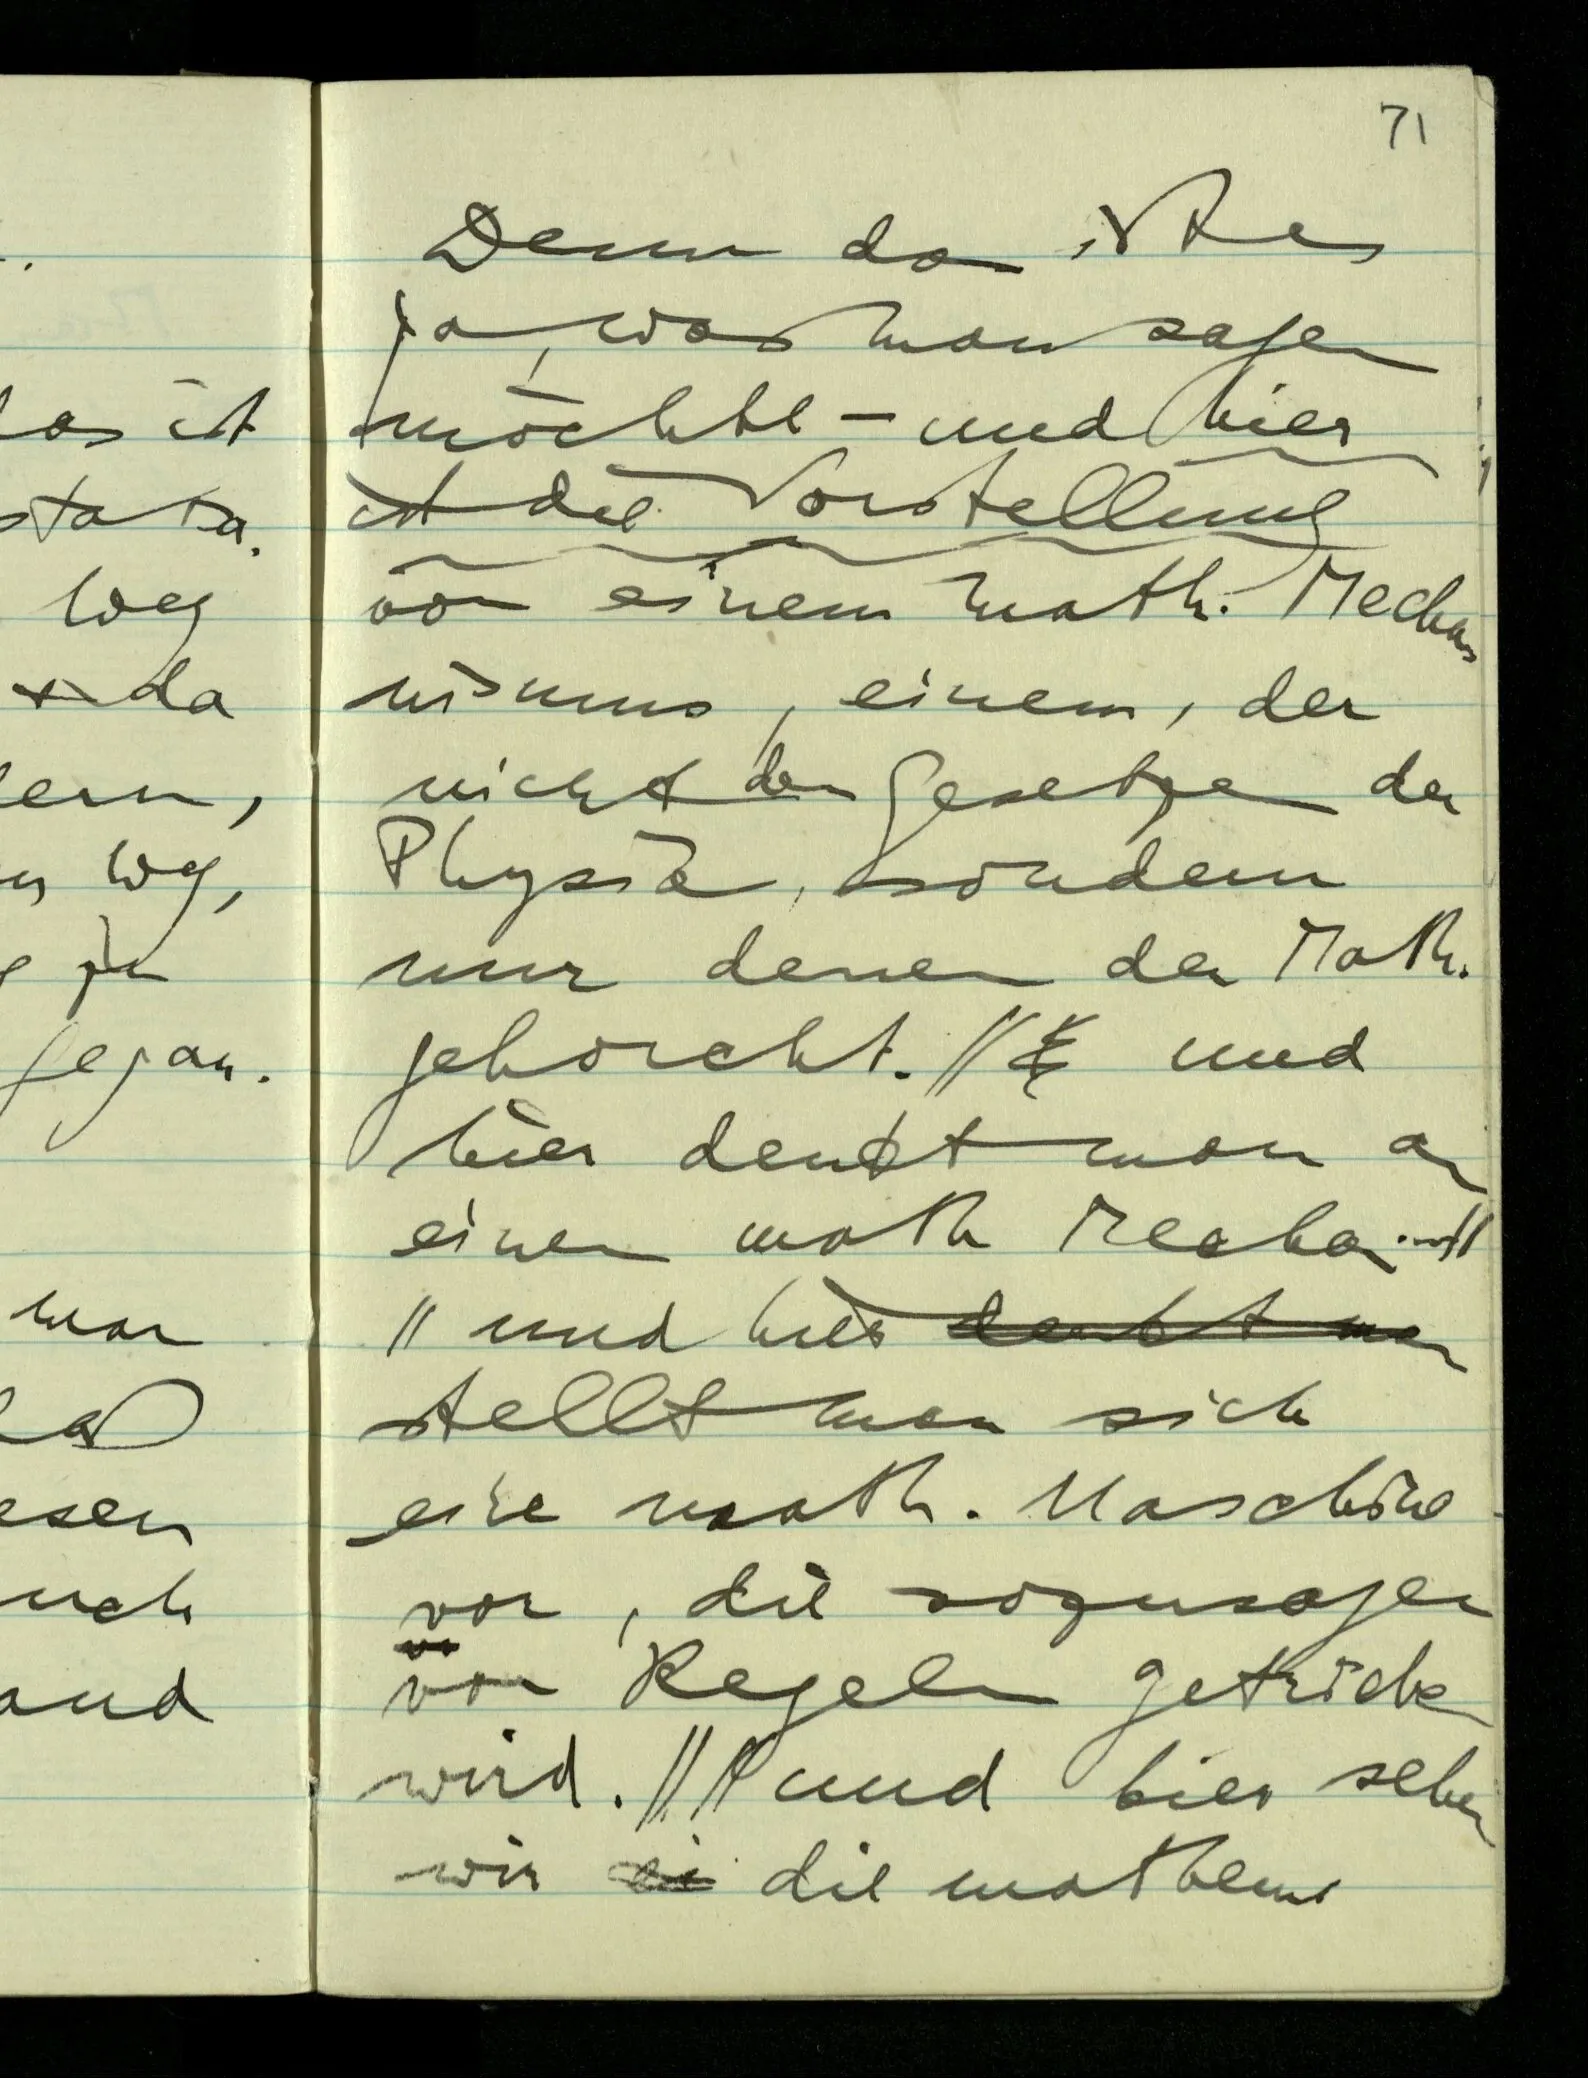 .
das ist
Weg
da
Weg,
gegan.
man
and
71
Denn da ist es
ja, was man sagen
möchte – und hier
ist die Vorstellung
von einem math. Mecha
nismus, einem, der
nicht den Gesetzen der
Physik, sondern
nur denen der Math.
gehorcht. // und
hier denkt man an
einen math Mecha...//
// und hier denkt man
stellt man sich
eine math. Maschine
vor, die sozusagen
von Regeln getrieben
wird. // // und hier sehen
wir ei die mathema